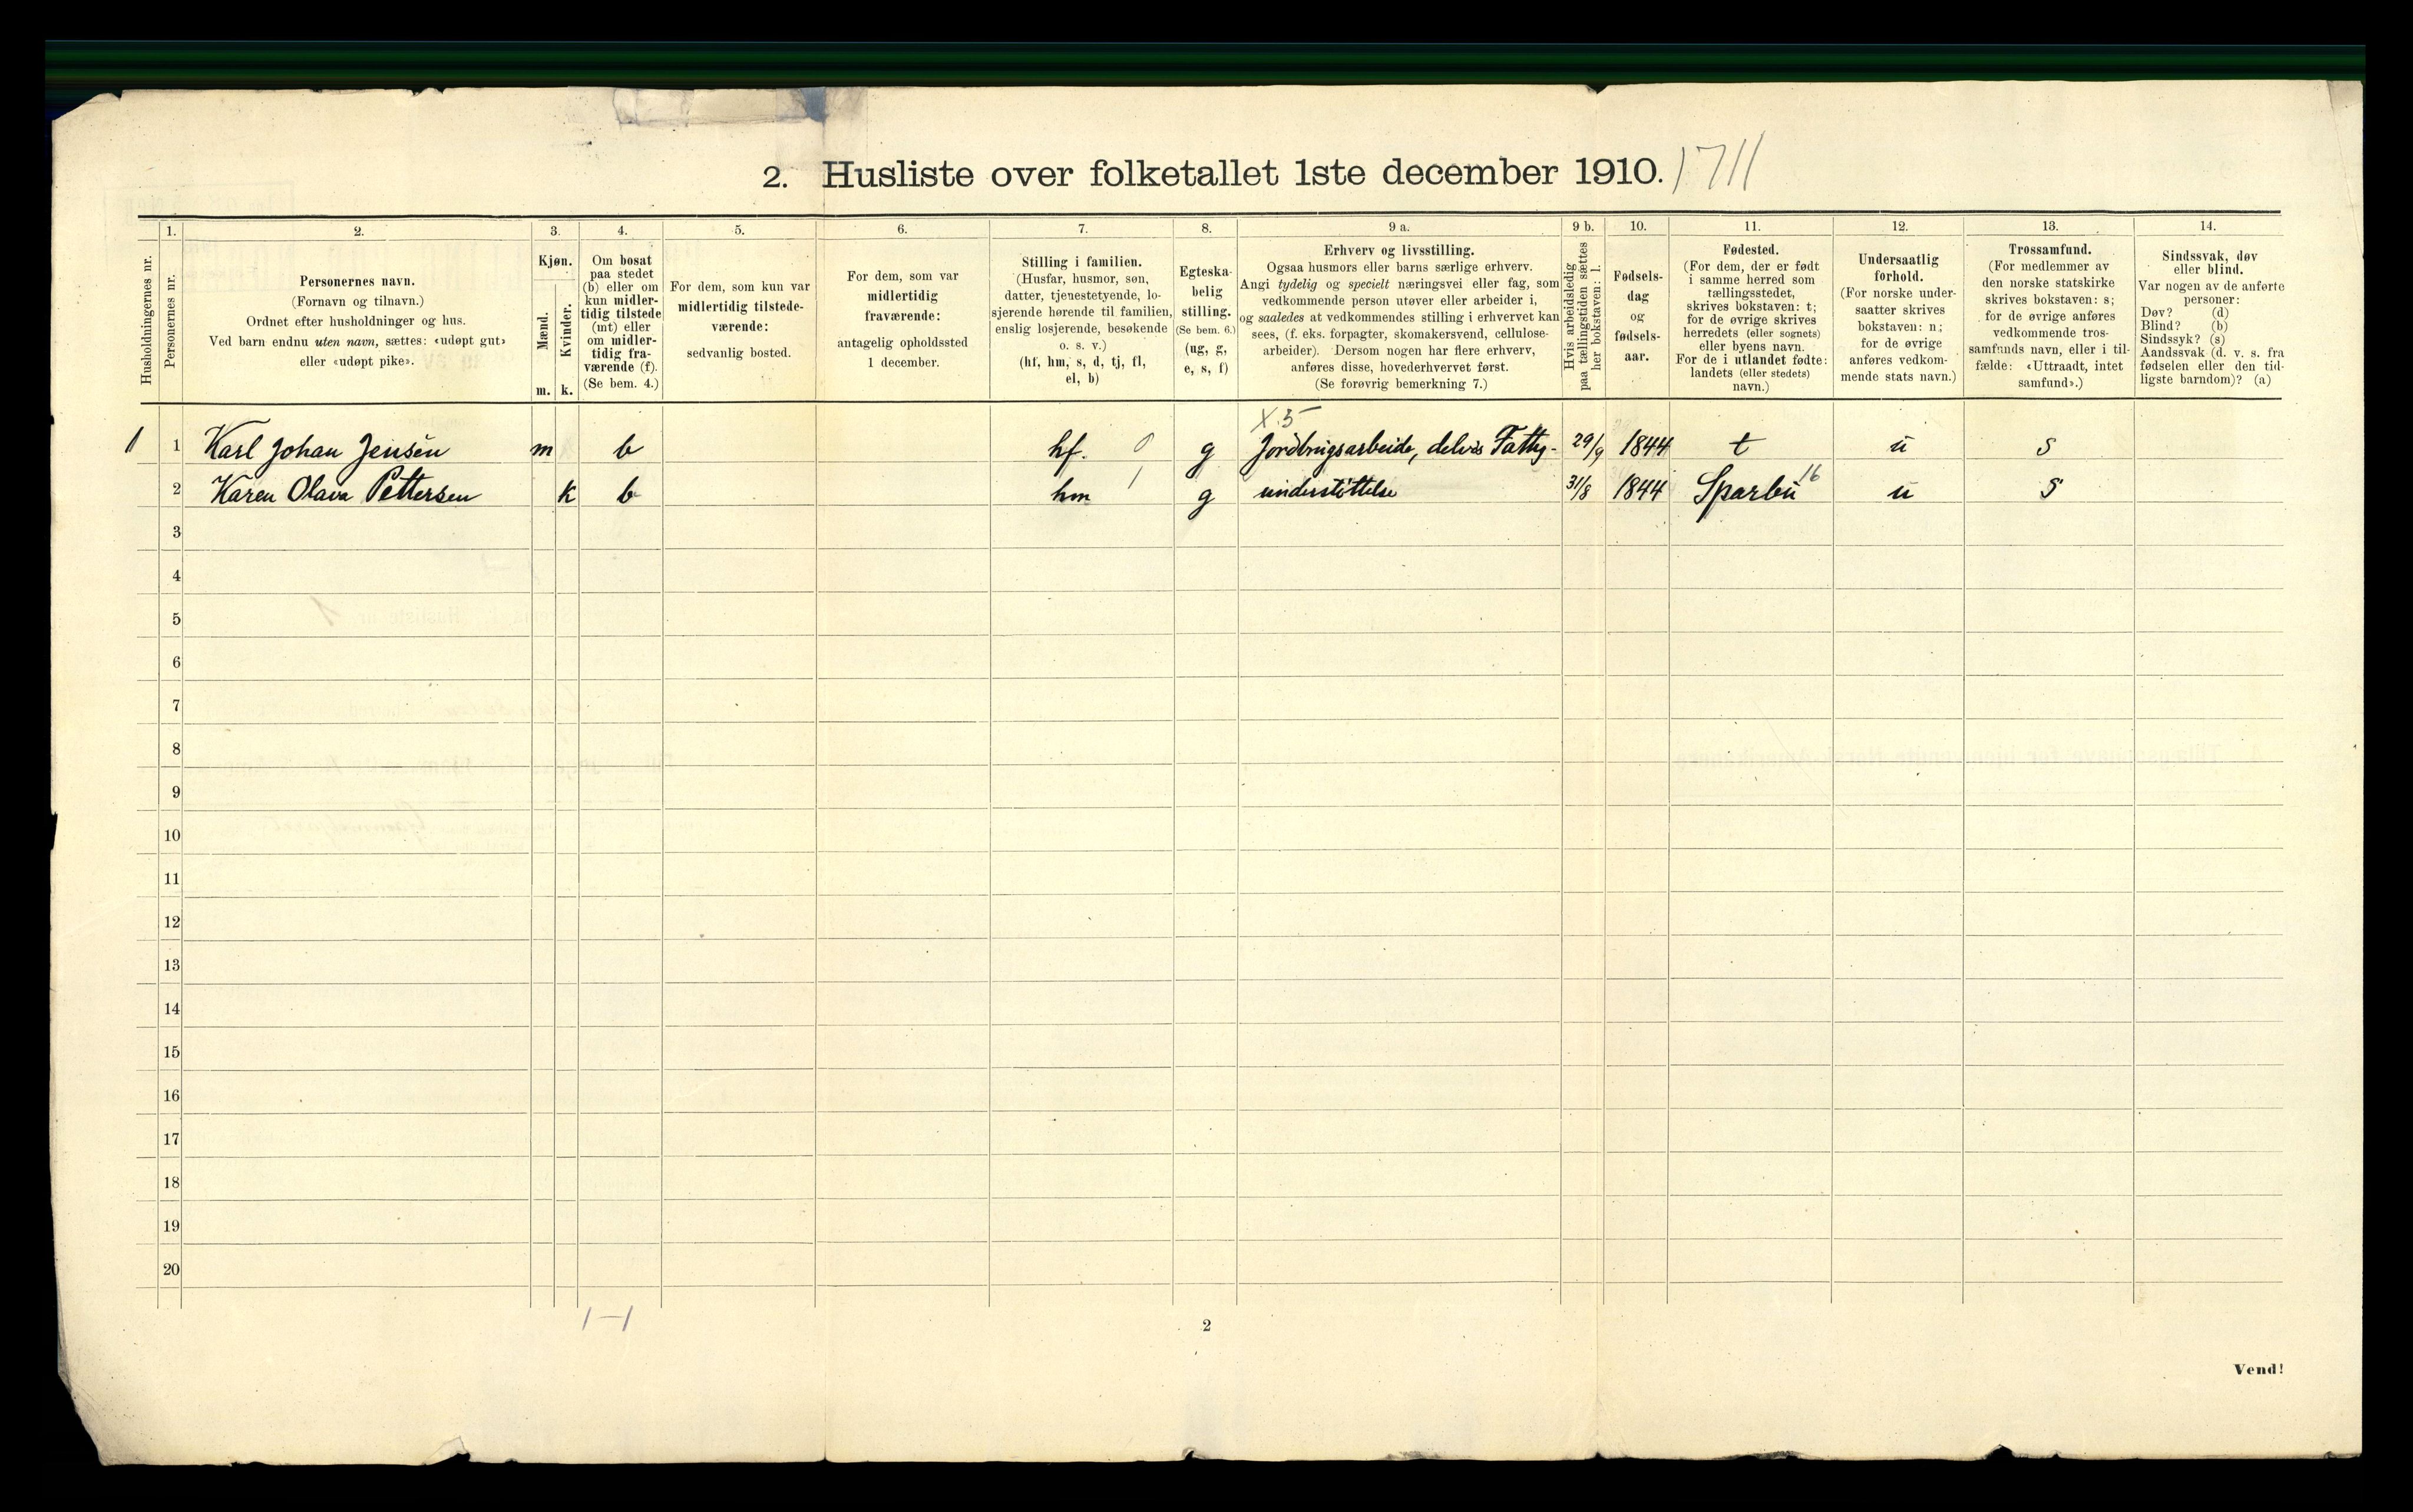 2. Husliste over folketallet 1ste december 1910. 1711
Husholdningernes nr.
1.
Personernes nr.
2.
Personernes navn.
(Fornavn og tilnavn.)
Ordnet efter husholdninger og hus.
Ved barn endnu uten navn, sættes: «udøpt gut»
eller «udøpt pike».
3.
Kjøn.
Mænd.
Kvinder.
m. k.
4.
Om bosat
paa stedet
(b) eller om
kun midler-
tidig tilstede
(mt) eller
om midler-
tidig fra-
værende (f).
(Se bem. 4.)
5.
For dem, som kun var
midlertidig tilstede-
værende:
sedvanlig bosted.
6.
For dem, som var
midlertidig
fraværende:
antagelig opholdssted
1 december.
7.
Stilling i familien.
(Husfar, husmor, søn,
datter, tjenestetyende, lo-
sjerende hørende til familien,
enslig losjerende, besøkende
o. s. v.)
(hf, hm, s, d, tj, fl,
el, b)
8.
Egteska-
belig
stilling.
(Se bem. 6.)
(ug, g,
e, s, f)
9 a.
Erhverv og livsstilling.
Ogsaa husmors eller barns særlige erhverv.
Angi tydelig og specielt næringsvei eller fag, som
vedkommende person utøver eller arbeider i,
og saaledes at vedkommendes stilling i erhvervet kan
sees, (f. eks. forpagter, skomakersvend, cellulose-
arbeider). Dersom nogen har flere erhverv,
anføres disse, hovederhvervet først.
(Se forøvrig bemerkning 7.)
9 b.
Hvis arbeidsledig
paa tællingstiden sættes
her bokstaven: l.
10.
Fødsels-
dag
og
fødsels-
aar.
11.
Fødested.
(For dem, der er født
i samme herred som
tællingsstedet,
skrives bokstaven: t;
for de øvrige skrives
herredets (eller sognets)
eller byens navn.
For de i utlandet fødte:
landets (eller stedets)
navn.)
12.
Undersaatlig
forhold.
(For norske under-
saatter skrives
bokstaven: n;
for de øvrige
anføres vedkom-
mende stats navn.)
13.
Trossamfund.
(For medlemmer av
den norske statskirke
skrives bokstaven: s;
for de øvrige anføres
vedkommende tros-
samfunds navn, eller i til-
fælde: «Uttraadt, intet
samfund».)
14.
Sindssvak, døv
eller blind.
Var nogen av de anførte
personer:
Døv? (d)
Blind? (b)
Sindssyk? (s)
Aandssvak (d. v. s. fra
fødselen eller den tid-
ligste barndom)? (a)
X.5
1 1 Karl Johan Jensen m b hf. 0 g Jordbrugsarbeide, delvis Fattig- 29/9 1844 t n s
2 Karen Olava Pettersen k b hm 1 g understøttelse 31/8 1844 Sparbu 16 n s
3
4
5
6
7
8
9
10
11
12
13
14
15
16
17
18
19
20
1-1
2
Vend!